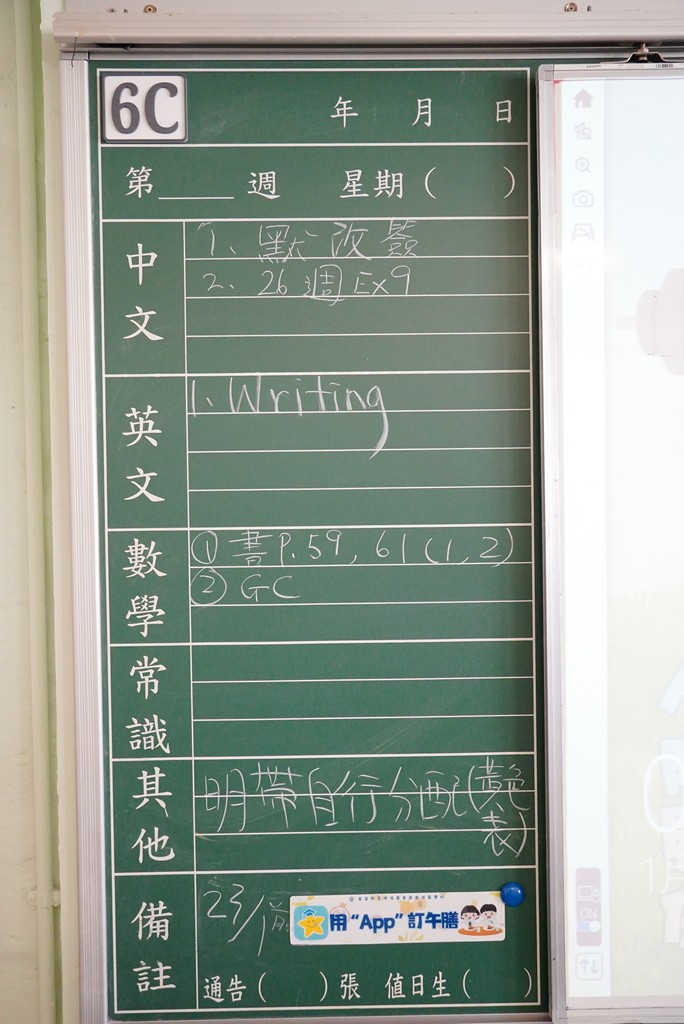 6C
年 月 日
第____週 星期( )
中文
1、默改簽
2、26週Ex9
英文
1. Writing
數學
① 書P.59, 61(1, 2)
② GC
常識
其他
明帶自行分配(黃色表)
備註
23/
用“App”訂午膳
通告( )張 值日生( )
ON